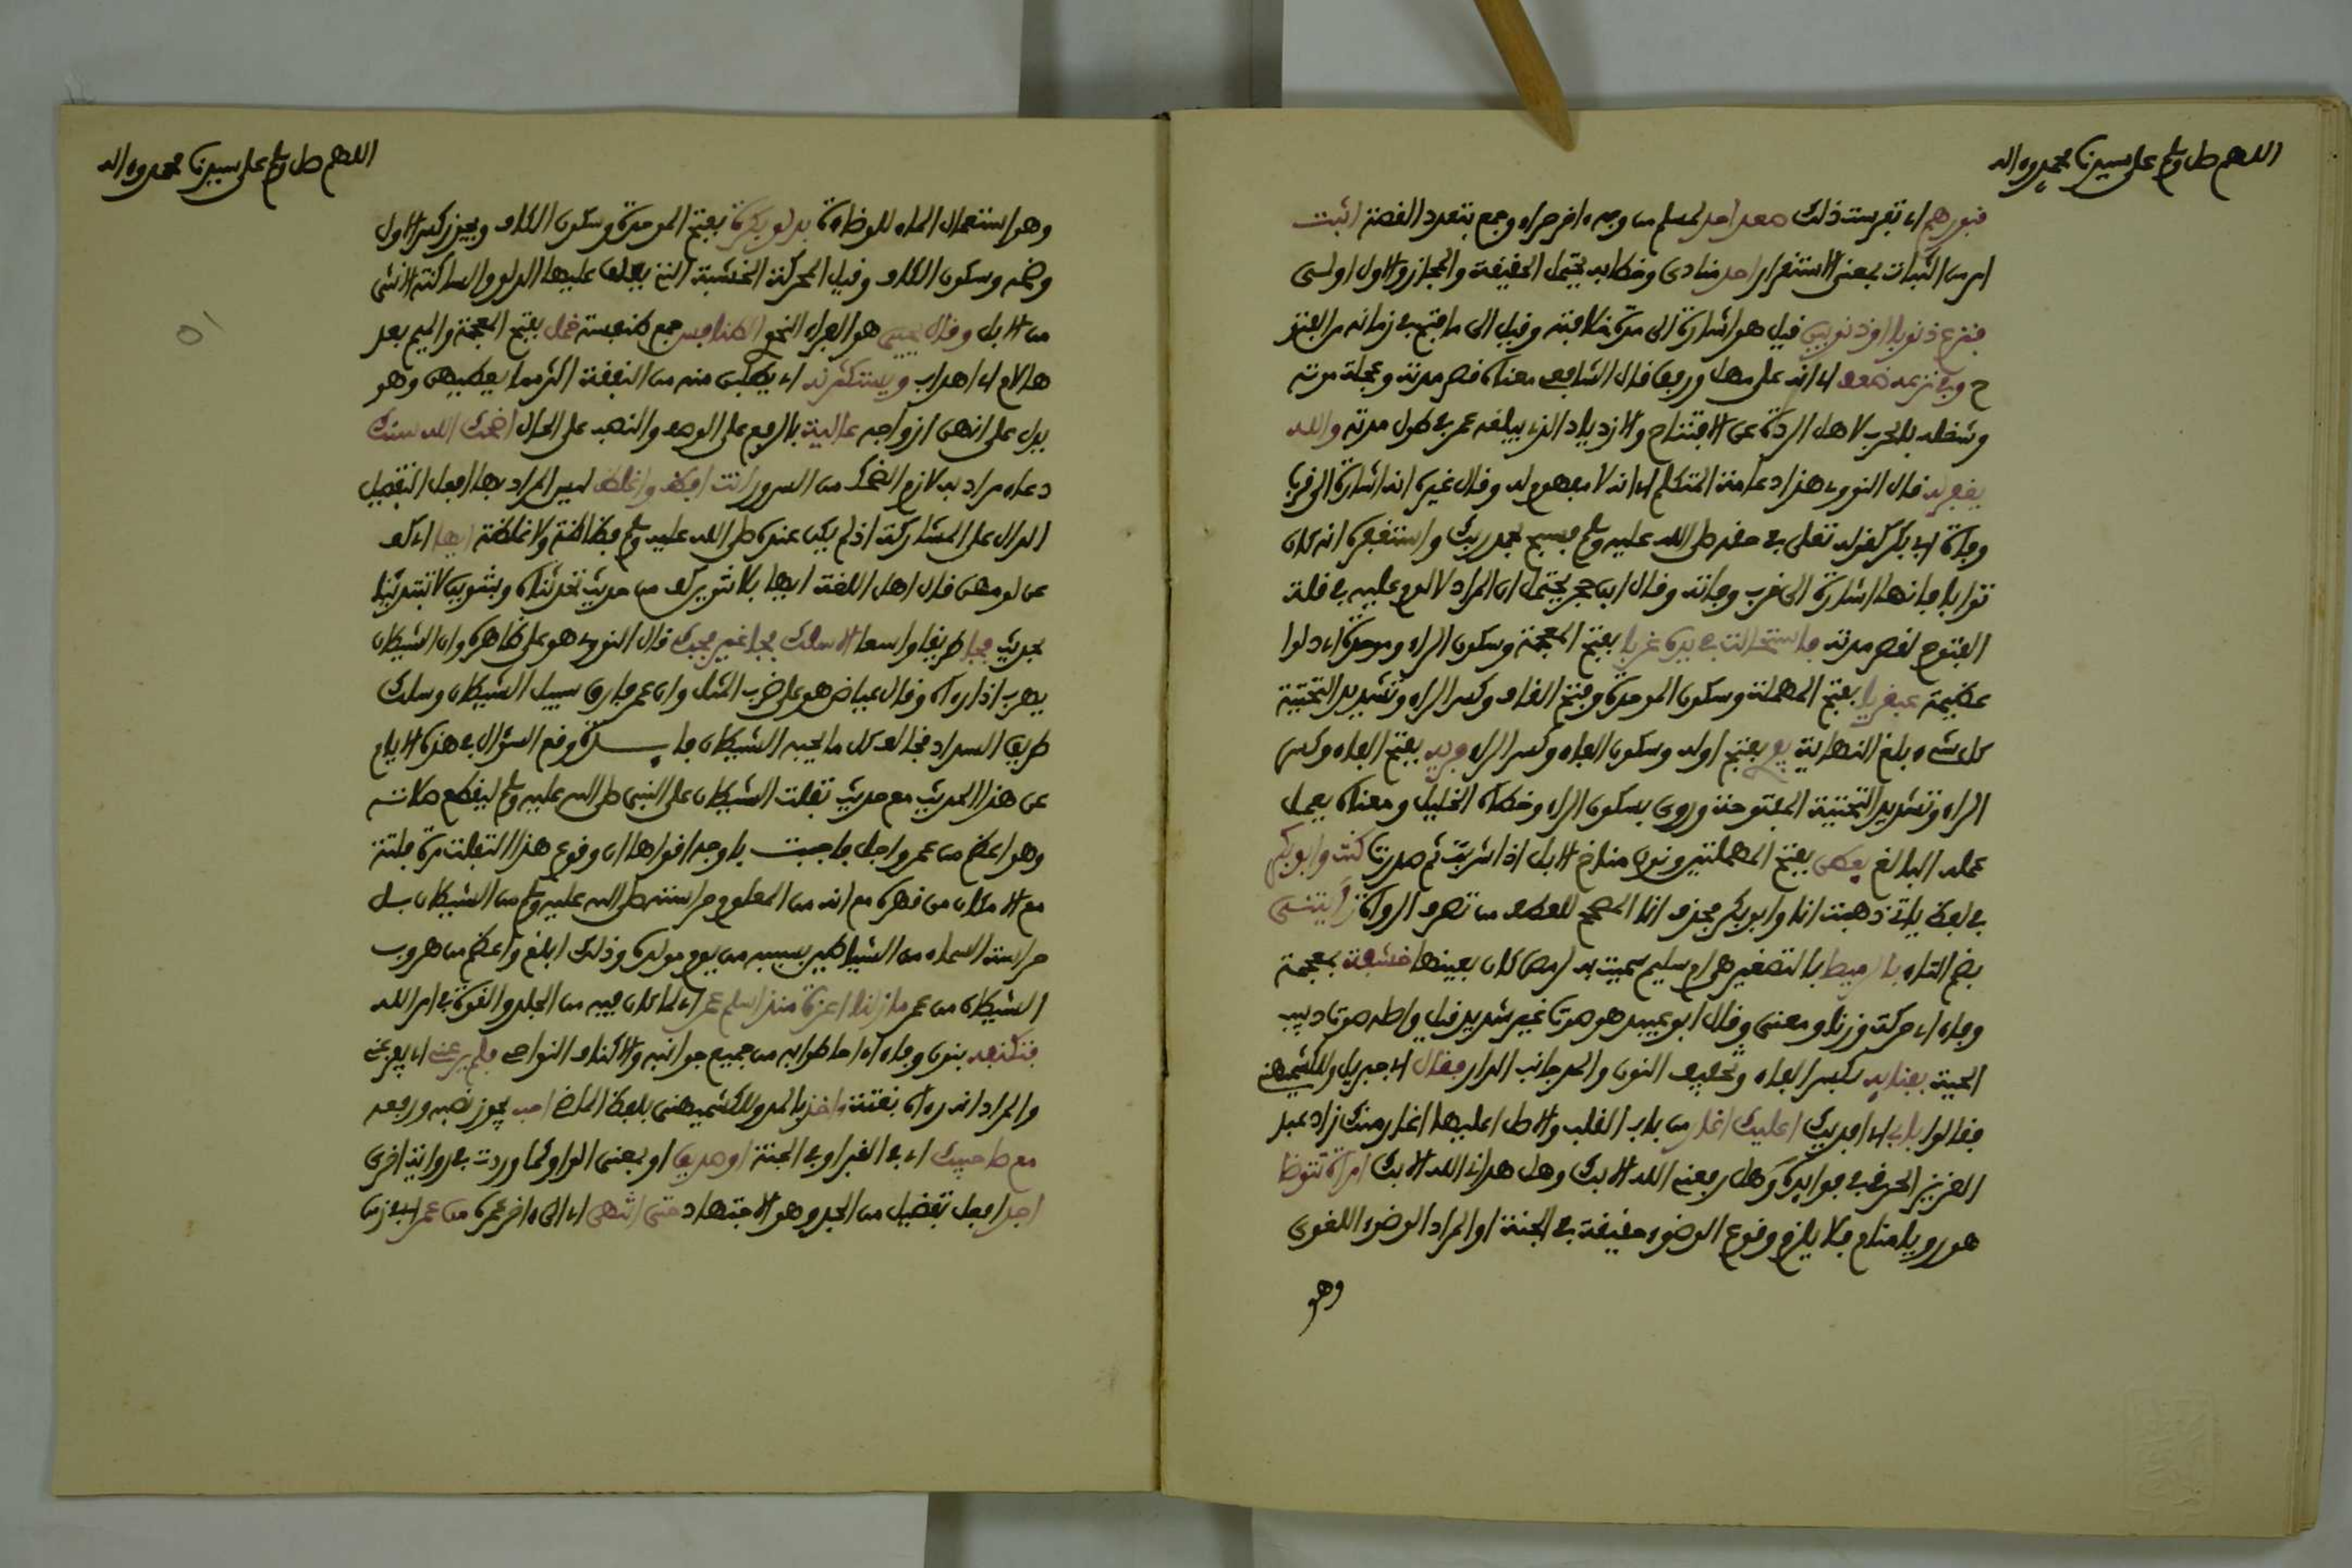 اللهم صل وسلم على سيدنا محمد وءاله
قبورهم اي تفرست ذلك صعد احد لمسلم من وجه ءاخر حراء وجمع بتعدد القصة اثبت
امر من الثبات بمعنى الاستقرار احد منادى وخطابه يحتمل الحقيقة والمجاز والاول اولى
فنزع ذنوبا او ذنوبين قيل هو اشارة الى مدة خلافته وقيل الى ما فتح في زمانه من الفتو
ح وفي نزعه ضعف اي انه على مهل ورفق قال الشافعي معناه قصر مدته وعجلة موته
وشغله بالحرب لاهل الردة عن الافتتاح والازدياد الذي بلغه عمر في طول مدته والله
يغفر له قال النووي هذا دعامة المتكلم اي انه لا مفهوم له وقال غيره انه اشارة الى قرب
وفاة ابي بكر كقوله تعلى في حقه صلى الله عليه وسلم فسبح بحمد ربك واستغفره انه كان
توابا فانها اشارة الى قرب وفاته وقال ابن حجر يحتمل ان المراد لا لوم عليه في قلة
الفتوح لقصر مدته فاستحالت في يده غربا بفتح المعجمة وسكون الراء وموحدة اي دلوا
عظيمة عبقريا بفتح المهملة وسكون الموحدة وفتح القاف وكسر الراء وتشديد التحتية
كل شيء بلغ النهاية يفري بفتح اوله وسكون الفاء وكسر الراء فريه بفتح الفاء وكسر
الراء وتشديد التحتية المفتوحة وروى بسكون الراء وخطأه الخليل ومعناه يعمل
عمله البالغ بعطن بفتح المهملتين ونون مناخ الابل اذا شربت ثم صدرت كنت وابو بكر
في لفظ ياتي ذهبت انا وابو بكر فحذف انا المصحح للعطف من تصرف الرواة رأيتني
بضم التاء بالرميصا بالتصغير هي ام سليم سميت به لرمص كان بعينها خشفة بمعجمة
وفاء اي حركة وزنا ومعنى وقال ابو عبيد هو صوت غير شديد قيل واصله صوت دبيب
الحية بفنايه بكسر الفاء وتخفيف النون والمد جانب الدار فقال اي جبريل وللكشميهني
فقالوا بابي اي افديك اعليك اغار من باب القلب والاصل اعليها اغار منك زاد عبد
العزيز الحربي في فوايده وهل رفعني الله الا بك وهل هداني الله الا بك امرأة تتوضا
هو رؤيا منام فلا يلزم وقوع الوضوء حقيقة في الجنة او المراد الوضوء اللغوى
وهو
اللهم صل وسلم على سيدنا محمد وءاله
وهو استعمال الماء للوضاءة بدلو بكرة بفتح الموحدة وسكون الكاف ويجوز كسر الاول
وضمه وسكون الكاف وقيل المحركة الخشبة التي يعلق عليها الدلو والساكنة الانثى
من الابل وقال يحيى هو الفراء النحو الطنافس جمع طنفسة خمل بفتح المعجمة والميم بعد
ها لام اي اهداب ويستكثرنه اي يطلبن منه من النفقة اكثر مما يعطيهن وهو
يدل على انهن ازواجه عالية بالرفع على الوصف والنصب على الحال اضحك الله سنك
دعاء مراد به لازم الضحك من السرور انت افظ واغلظ ليس المراد بها افعل التفضيل
الدال على المشاركة اذ لم يكن عنده صلى الله عليه وسلم فظاظة ولا غلظة ايها اي كف
عن لومهن قال اهل اللغة ايها بلا تنوين كف من حديث تحدثناه وبتنوين لا تبتدئنا
بحديث فجا طريقا واسعا الا سلك فجا غير فجك قال النووي هو على ظاهره وان الشيطان
يهرب اذا رءاه وقال عياض هو على ضرب المثل وان عمر فارق سبيل الشيطان وسلك
طريق السداد فخالف كل ما يحبه الشيطان فايدة وقع السؤال في هذه الايام
عن هذا الحديث مع حديث تفلت الشيطان على النبي صلى الله عليه وسلم ليقطع صلاته
وهو اعظم من عمر واجل فاجبت باوجه اقواها ان وقوع هذا التفلت مرة فلتة
مع الامكان من قهره مع انه من المعلوم حراسته صلى الله عليه وسلم من الشيطان بل
حراسة السماء من الشياطين بسببه من يوم مولده وذلك ابلغ واعظم من هروب
الشيطان من عمر ما زلنا اعزة منذ اسلم عمر اي لما كان فيه من الجلد والقوة في امر الله
فتكنفه بنون وفاء اي احاطوا به من جميع جوانبه والاكناف النواحي فلم يرعني اي يفزعني
والمراد انه رءاه بغتة ءاخذ بالمد وللكشميهني بلفظ الماضي احب يجوز نصبه ورفعه
مع صاحبيك اي في القبر او في الجنة او صديق او بمعنى الواو كما وردت في رواية اخرى
اجد افعل تفضيل من الجد وهو الاجتهاد حتى انتهى اي الى ءاخر عمره من عمر اي في زمن